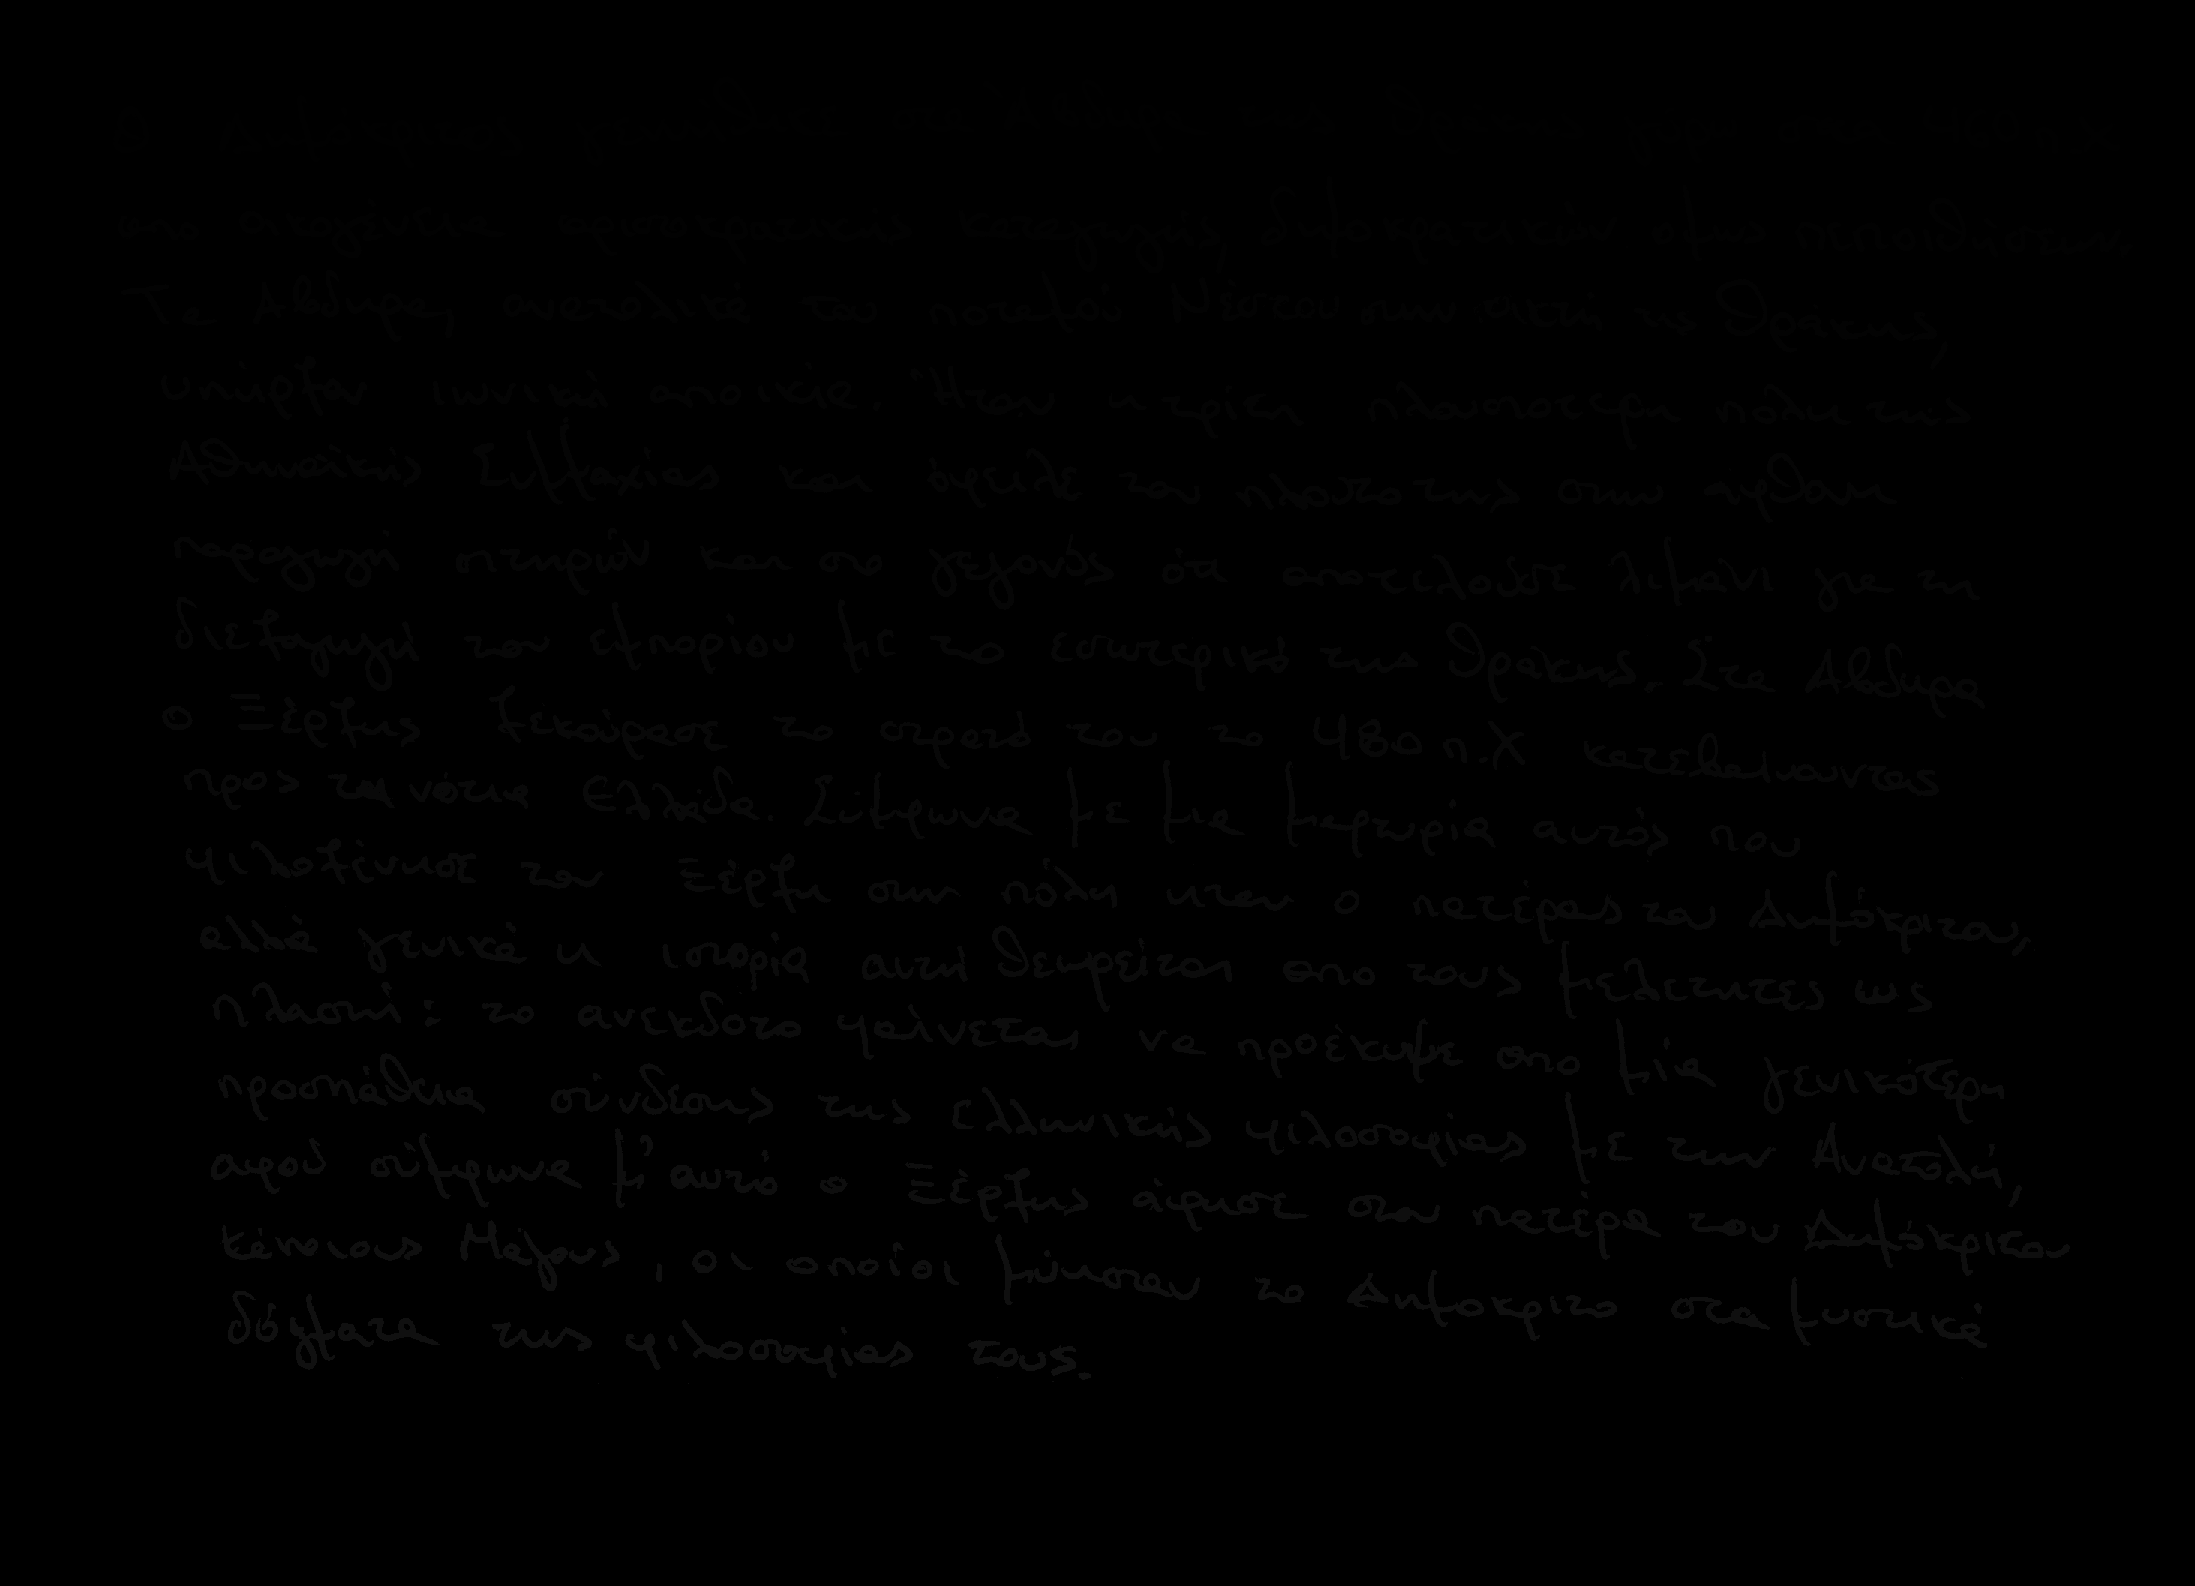 Ο Δημόκριτος γεννήθηκε στα Άβδηρα της Θράκης
απο οικογένεια αριστοκρατικής καταγωγής, δημοκρατικών όμως πεποιθήσεων.
Τα Αβδηρα, ανατολικά του ποταμού Νέστου στην ακτή της Θράκης,
υπήρξαν ιωνική αποικία. Ήταν η τρίτη πλουσιοτερη πόλη της
Αθηναϊκής Συμμαχίας και όφειλε τον πλούτο της στην αφθονη
παραγωγή σιτηρών και στο γεγονός ότι αποτελούσε λιμάνι για τη
διεξαγωγή του εμπορίου με το εσωτερικό της Θράκης. Στα Αβδηρα
ο Ξέρξης ξεκούρασε το στρατό του το 480 π.Χ κατεβαίνοντας
προς τη νότια Ελλάδα. Σύμφωνα με μια μαρτυρία αυτός που
φιλοξένησε τον Ξέρξη στην πόλη ηταν ο πατέρας του Δημόκριτου,
αλλά γενικά η ιστορία αυτή θεωρείται απο τους μελετητες ως
πλαστή: το ανεκδότο φαίνεται να προέκυψε απο μία γενικότερη
προσπάθεια σύνδεσης της ελληνικής φιλοσοφίας με την Ανατολή,
αφού σύμφωνα μ' αυτό ο Ξέρξης άφησε στον πατέρα του Δημόκριτου
κάποιους Μάγους, οι οποίοι μύησαν το Δημοκριτο στα μυστικά
δόγματα της φιλοσοφίας τους.